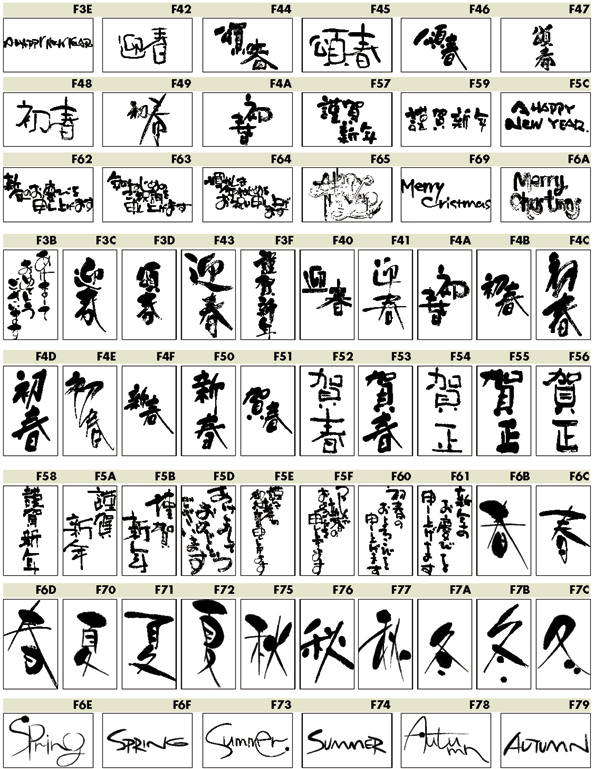 F3E F42 F44 F45 F46 F47
A HAPPY NEW YEAR 迎春 頌春 頌春 頌春 頌春
F48 F49 F4A F57 F59 F5C
初春 初春 初春 謹賀 謹賀新年 A HAPPY
新年 NEW YEAR.
F62 F63 F64 F65 F69 F6A
新春のお慶びを Merry Merry
申し上げます 申し上げます 申し上げます Cristmas Christmas
F3B F3C F3D F43 F3F F40 F41 F4A F4B F4C
迎春 頌春 迎春 謹賀新年 迎春 迎春 初春 初春 初春
おめでとう
ございます
F4D F4E F4F F50 F51 F52 F53 F54 F55 F56
初春 初春 新春 新春 賀春 賀春 賀春 賀正 賀正 賀正
F58 F5A F5B F5D F5E F5F F60 F61 F6B F6C
謹賀新年 謹賀 謹賀 あけまして 初春の 新年の 春 春
新年 新年 おめでとう およろこびを お慶びを
ございます 申し上げます 申し上げます
F6D F70 F71 F72 F75 F76 F77 F7A F7B F7C
春 夏 夏 夏 秋 秋 秋 冬 冬 冬
F6E F6F F73 F74 F78 F79
Spring SPRING Summer. SUMMER Autumn AUTUMN